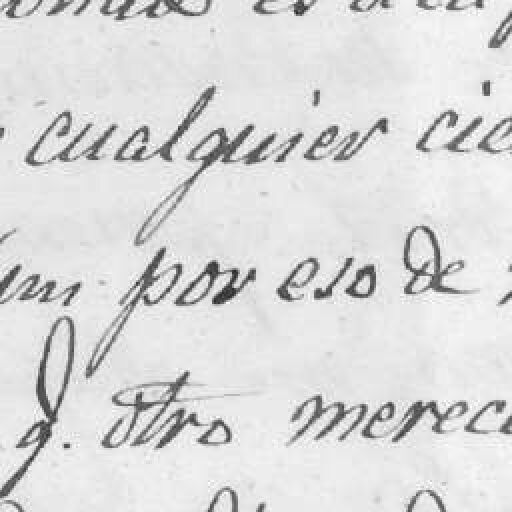 cualquier cie
um por eso de
q. otro merece